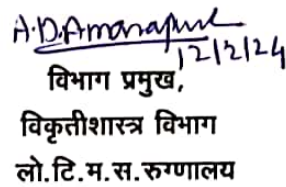 A.D.Amarapur
12/2/24
विभाग प्रमुख,
विकृतीशास्त्र विभाग
लो.टि.म.स.रुग्णालय